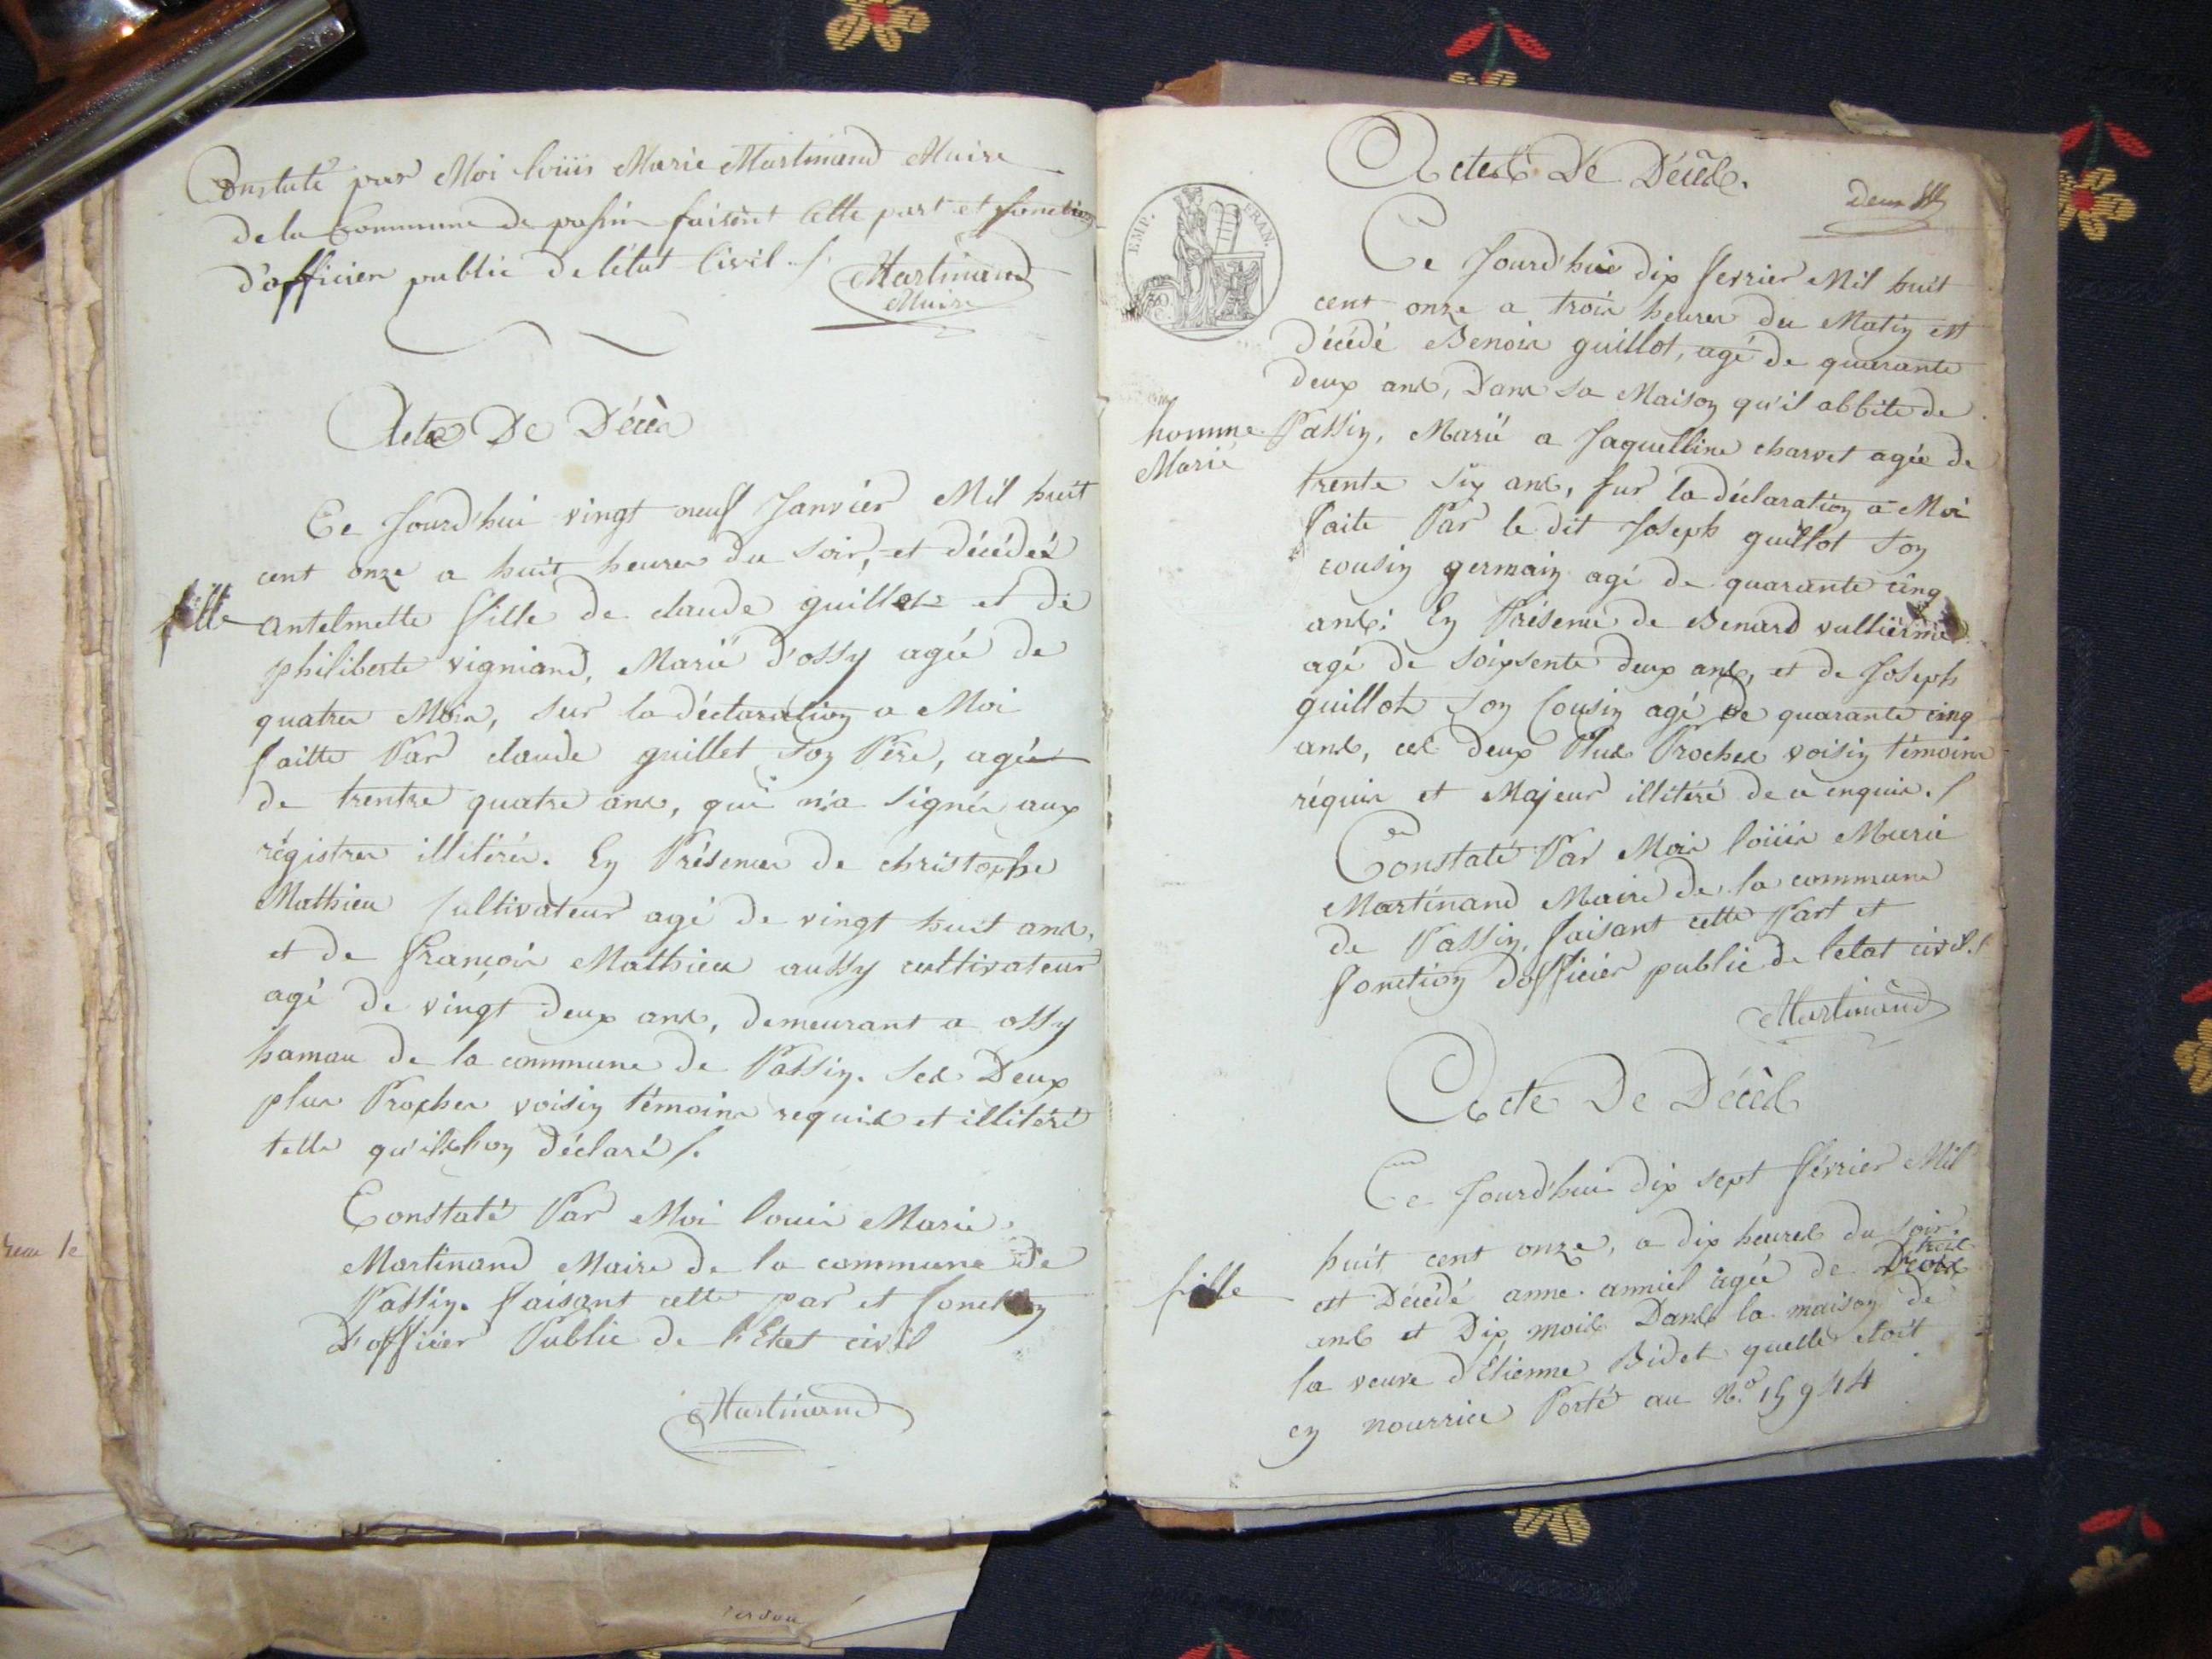 Constaté par Moi louis Marie Martinand Maire
de la Commune de passin faisent Cette part et fonction
d'officier public de létat Civil ./.
Martinand
Maire
Acte De Décès
Ce Jourd'hui vingt neuf Janvier Mil huit
cent onze a huit heures du soir, et décédés
fille
antelmette fille de claude guillet et de
philiberte vigniand, Marié d'ossy agée de
quatres Mois, sur la déclaration a Moi
faitte Par claude guillet son Père, agée
de trentre quatre ans, qui n'a signés aux
régistres illitérés. En Présences de christophe
Mathieu Cultivateur agé de vingt huit ans,
et de françois Mathieu aussy cultivateur
agé de vingt deux ans, demeurant a ossy
hamau de la commune de Passin. Ses Deux
plus Proches voisin témoins requis et illitéré
telle qu'ils l'on déclaré /.
Constaté Par Moi louis Marie
Martinand Maire de la commune de
Passin. faisant cette par et fonction
D'officier Public de l'Etat civil
Martinand
Actes De Décès.
deux
EMP. FRAN.
Ce Jourd'hui dix fevrier Mil huit
cent onze a trois heures du Matin est
décédé Benois guillot, agé de quarante
deux ans, Dans sa Maison qu'il abbite de
homme
Marié
Passin, Marié a Jaquelline charvet agée de
trente six ans, sur la déclaration a Moi
faite Par le dit Joseph guillot son
cousin germain agé de quarante cinq
ans: En Présence de Benard vulliermé
agé de soixsente deux ans, et de Joseph
guillot son Cousin agé de quarante cinq
ans, ces deux Plus Proches voisin témoins
réquis et Majeur illitéré de ce enquis./
Constaté Par Mois louis Marie
Martinand Maire de la commune
de Passin, faisant cette Part et
fonction dofficier public de létat civil./
Martinand
Acte De Décès
Ce Jourd'hui dix sept février Mil
huit cent onze, a dix heures du soir.
trois
fille
est Décédé anne anniel agée de
ans et Dix mois Dans la maison de
la veuve d'Etienne Bidet quelle étoit
en nourrice Porté au N.o 15944